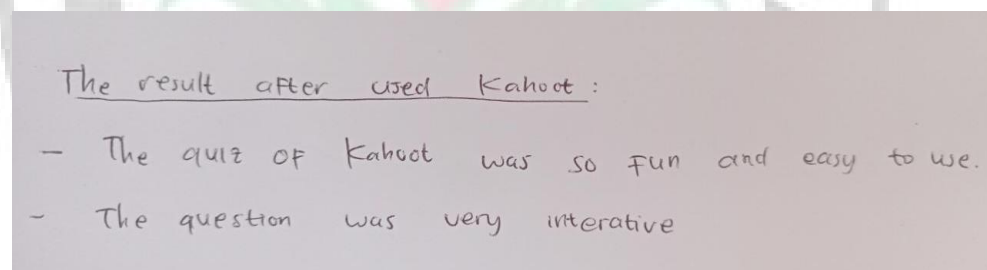 The result after used Kahoot :
- The quiz of Kahoot was so fun and easy to use.
- The question was very interative